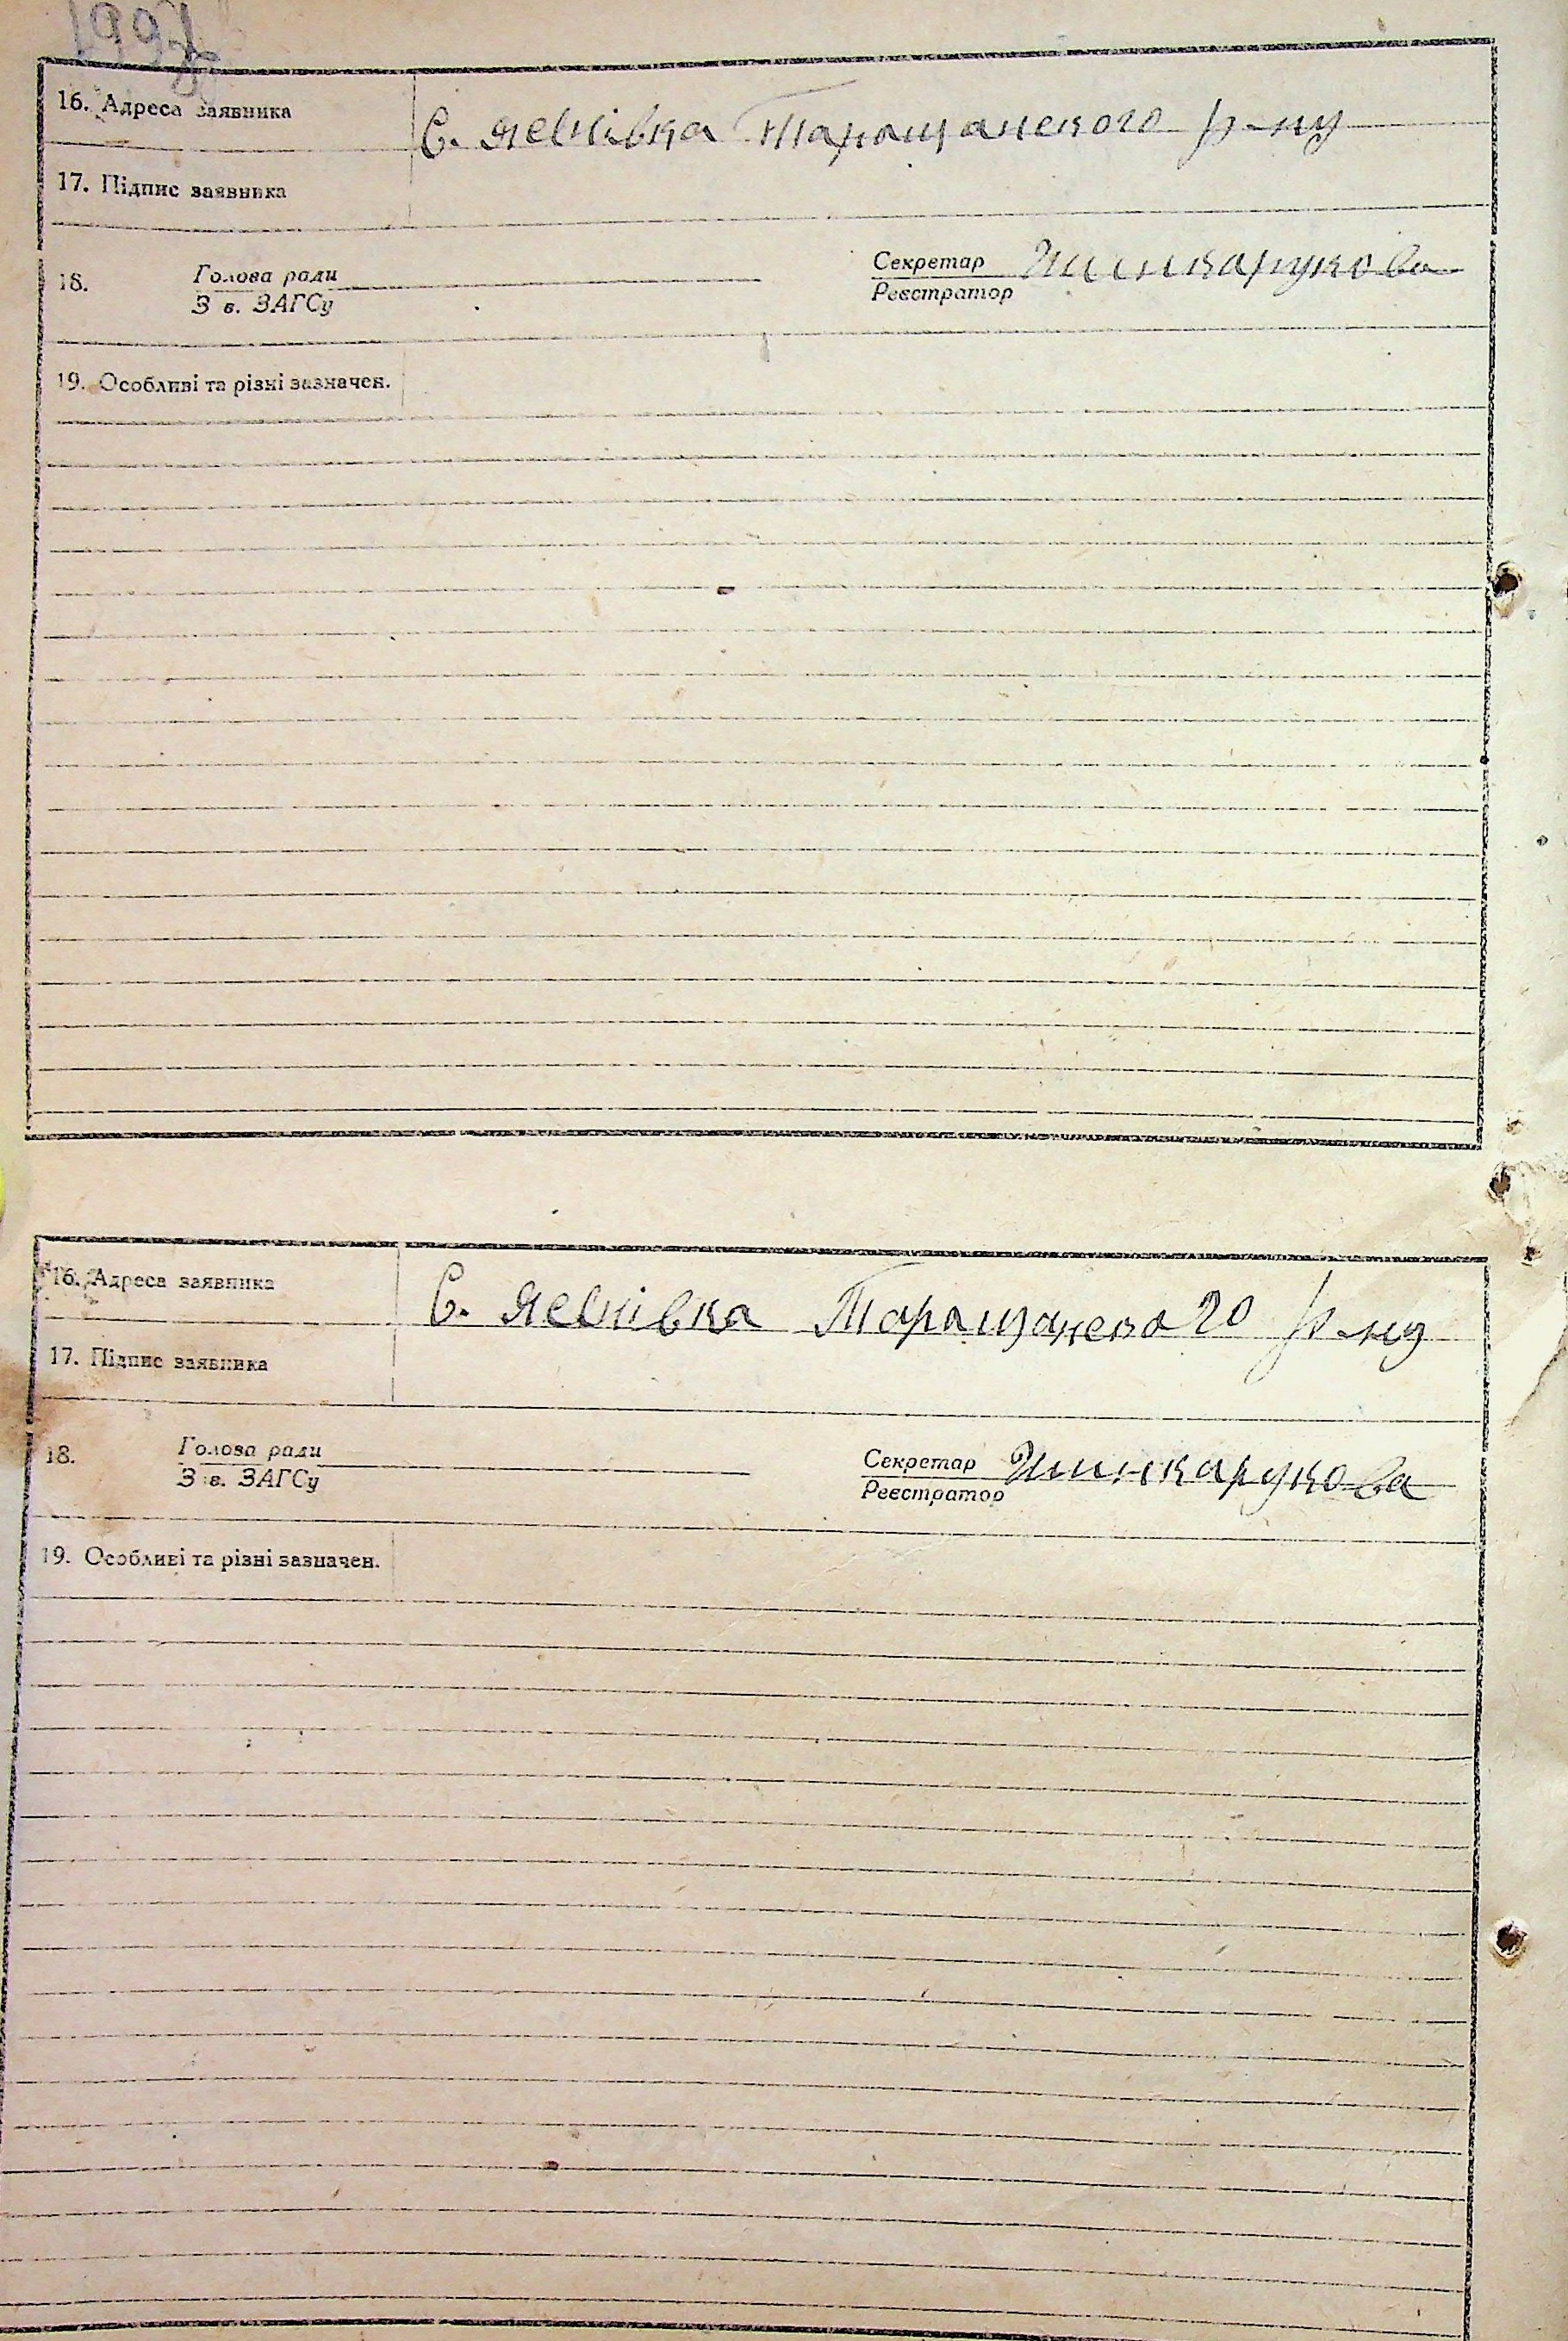 16. Адреса заявника С. Яснівка Таращанского р-ну
17. Підпис заявника
18. Голова ради Секретар Шинкарукова
З в. ЗАГСу Реєстратор
19. Особливі та різні зазначен.
16. Адреса заявника С. Яснівка Таращанского р-ну
17. Підпис заявника
18. Голова ради Секретар Шинкарукова
З в. ЗАГСу Реєстратор
19. Особливі та різні зазначен.